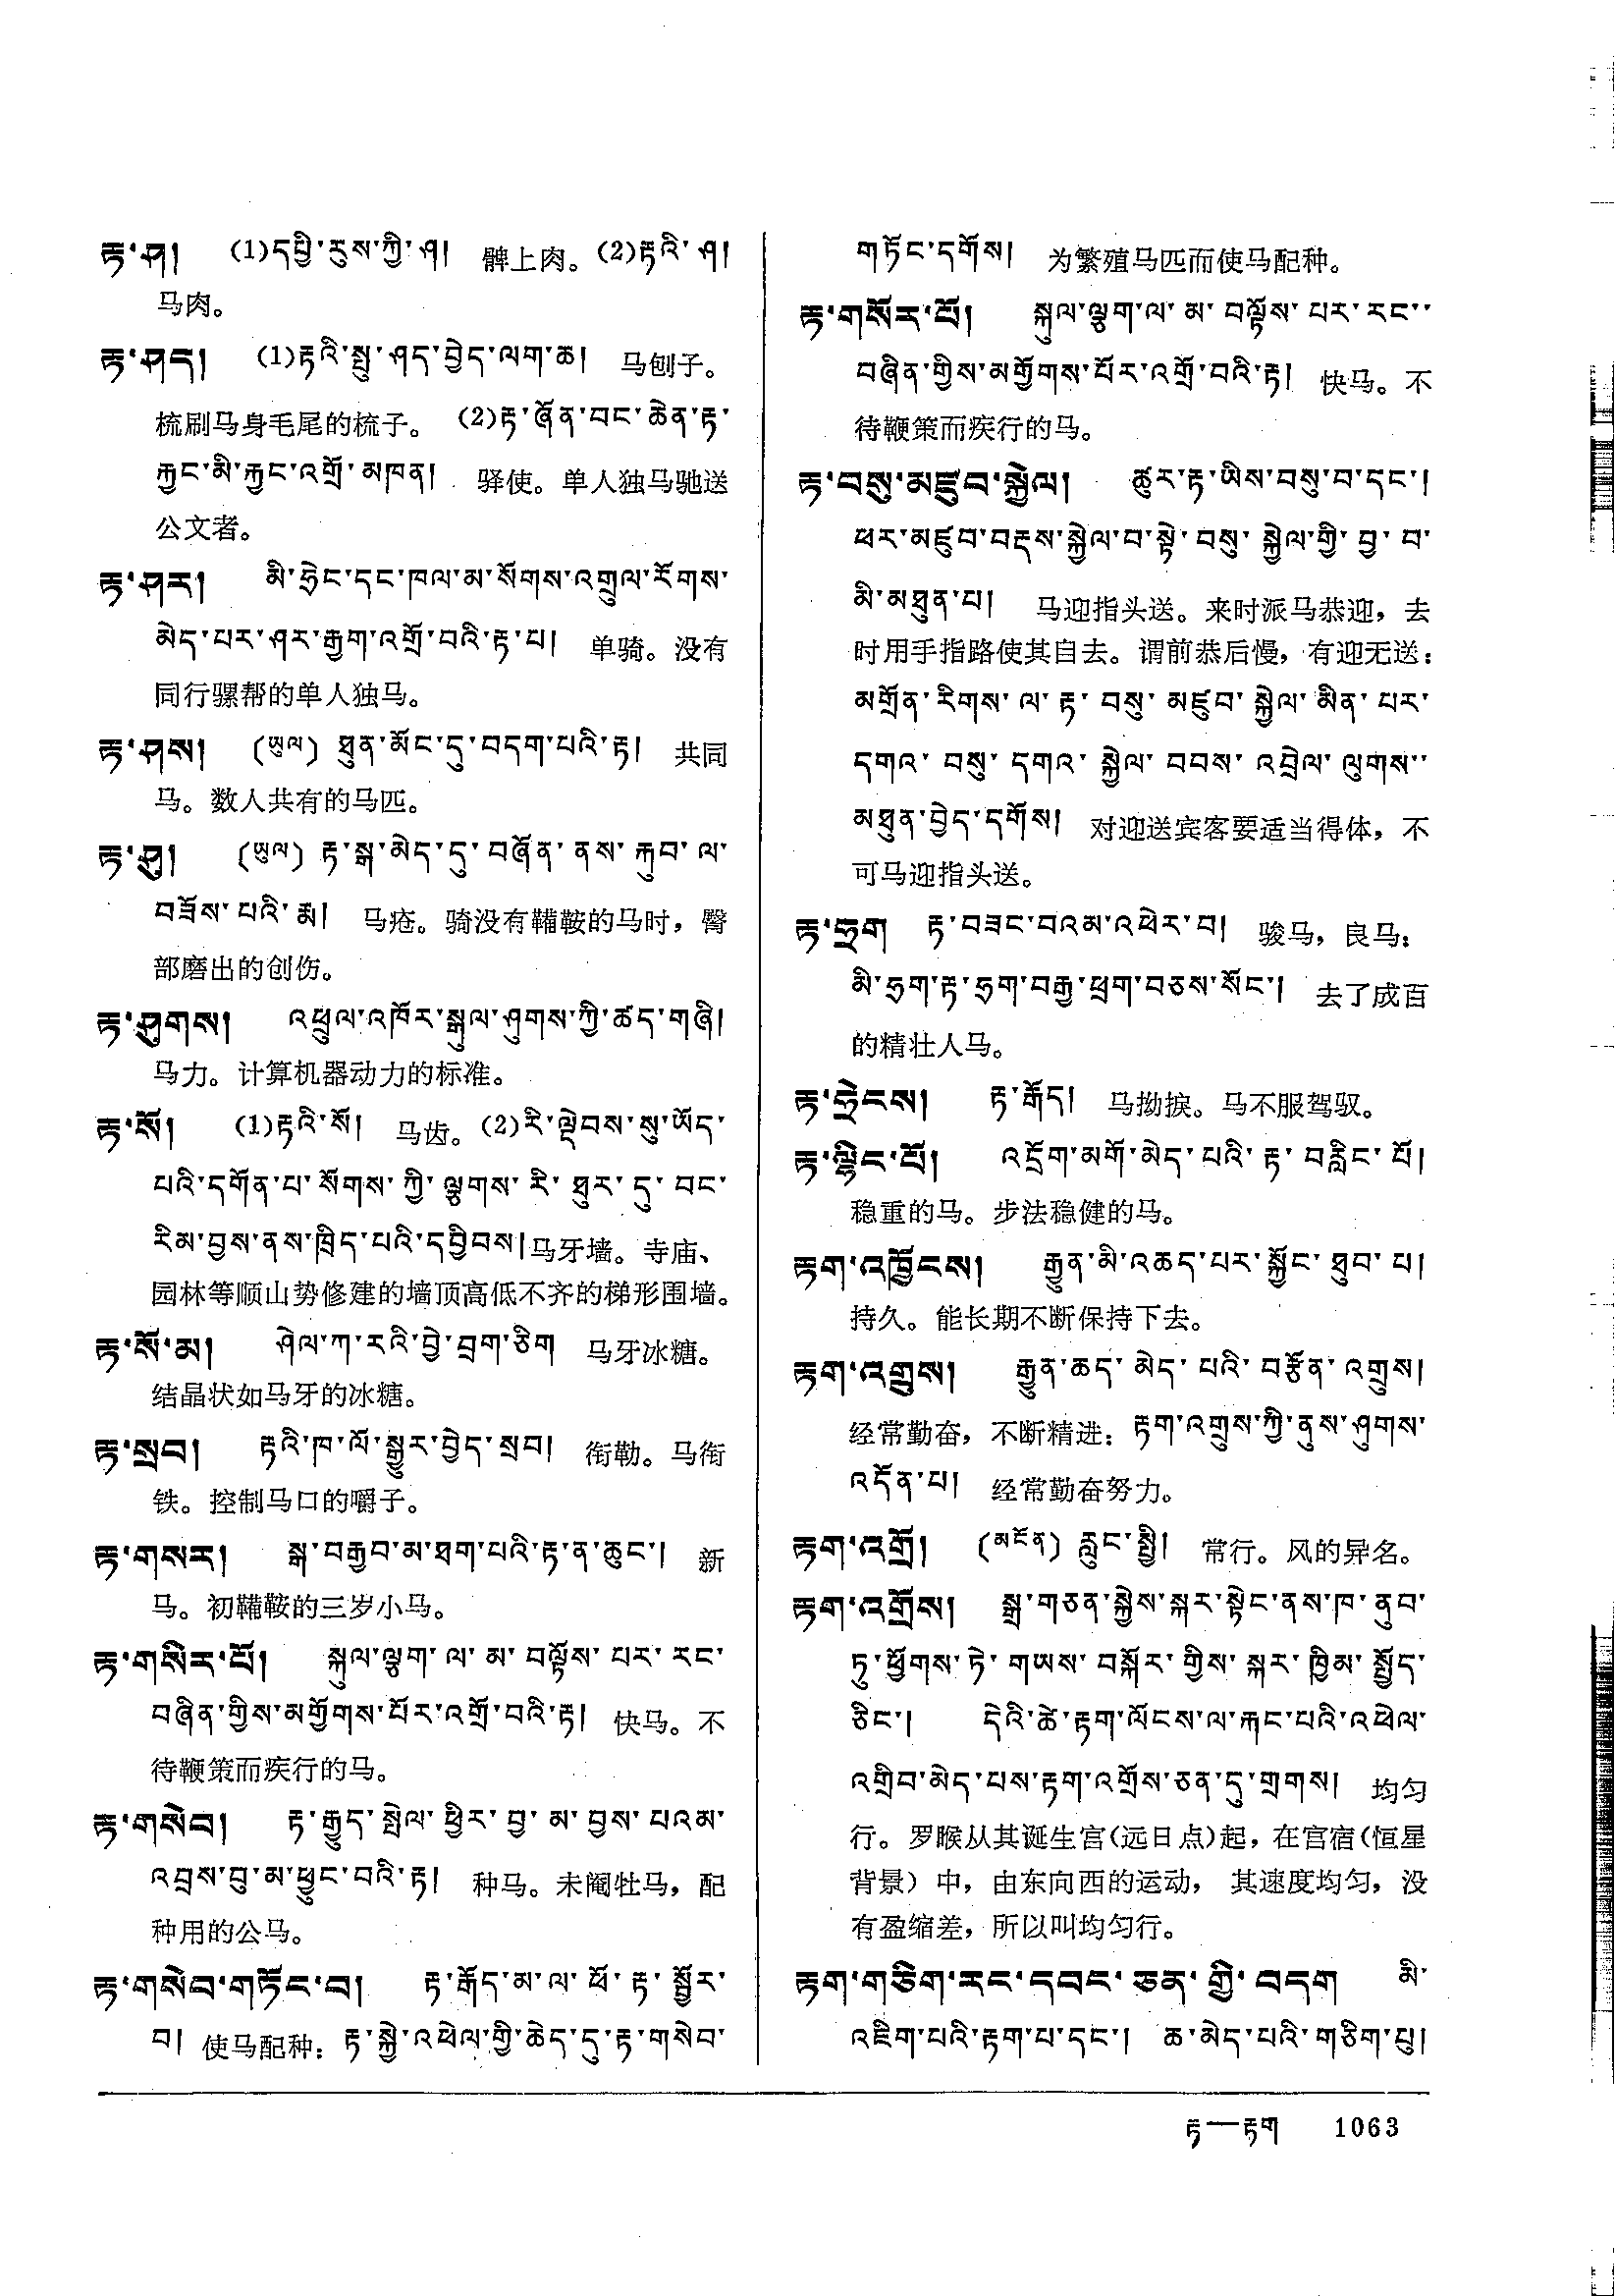 རྟ་ཤ། (1)དཔྱི་རུས་ཀྱི་ཤ། 髀上肉。(2)རྟའི་ཤ།
马肉。
རྟ་ཤད། (1)རྟའི་སྤུ་ཤད་བྱེད་ལག་ཆ། 马刨子。
梳刷马身毛尾的梳子。 (2)རྟ་ཞོན་བང་ཆེན་རྟ་
རྐྱང་མི་རྐྱང་འགྲོ་མཁན། 驿使。单人独马驰送
公文者。
རྟ་ཤར། མི་ཧྲེང་དང་ཁལ་མ་སོགས་འགྲུལ་རོགས་
མེད་པར་ཤར་རྒྱག་འགྲོ་བའི་རྟ་པ། 单骑。没有
同行骡帮的单人独马。
རྟ་ཤས། (ཡུལ) ཐུན་མོང་དུ་བདག་པའི་རྟ། 共同
马。数人共有的马匹。
རྟ་ཤུ། (ཡུལ) རྟ་སྒ་མེད་དུ་བཞོན་ནས་རྐུབ་ལ་
བཟོས་པའི་རྨ། 马疮。骑没有鞴鞍的马时，臀
部磨出的创伤。
རྟ་ཤུགས། འཕྲུལ་འཁོར་སྒུལ་ཤུགས་ཀྱི་ཚད་གཞི།
马力。计算机器动力的标准。
རྟ་སོ། (1)རྟའི་སོ། 马齿。(2)རི་ལྡེབས་སུ་ཡོད་
པའི་དགོན་པ་སོགས་ཀྱི་ལྕགས་རི་ཐུར་དུ་བང་
རིམ་བྱས་ནས་ཁྲིད་པའི་དབྱིབས།马牙墙。寺庙、
园林等顺山势修建的墙顶高低不齐的梯形围墙。
རྟ་སོ་མ། ཤེལ་ཀ་རའི་བྱེ་བྲག་ཅིག 马牙冰糖。
结晶状如马牙的冰糖。
རྟ་སྲབ། རྟའི་ཁ་ལོ་སྒྱུར་བྱེད་སྲབ། 衔勒。马衔
铁。控制马口的嚼子。
རྟ་གསར། སྒ་བརྒྱབ་མ་ཐག་པའི་རྟ་ན་ཆུང་། 新
马。初鞴鞍的三岁小马。
རྟ་གསིར་པོ། སྐུལ་ལྕག་ལ་མ་བལྟོས་པར་རང་
བཞིན་གྱིས་མགྱོགས་པོར་འགྲོ་བའི་རྟ། 快马。不
待鞭策而疾行的马。
རྟ་གསེབ། རྟ་རྒྱུད་སྤེལ་ཕྱིར་བྱ་མ་བྱས་པའམ་
འབྲས་བུ་མ་ཕྱུང་བའི་རྟ། 种马。未阉牡马，配
种用的公马。
རྟ་གསེབ་གཏོང་བ། རྟ་རྒོད་མ་ལ་ཕོ་རྟ་སྦྱོར་
བ། 使马配种：རྟ་སྐྱེ་འཕེལ་གྱི་ཆེད་དུ་རྟ་གསེབ་
གཏོང་དགོས། 为繁殖马匹而使马配种。
རྟ་གསོར་པོ། སྐུལ་ལྕག་ལ་མ་བལྟོས་པར་རང་་
བཞིན་གྱིས་མགྱོགས་པོར་འགྲོ་བའི་རྟ། 快马。不
待鞭策而疾行的马。
རྟ་བསུ་མཛུབ་སྐྱེལ། ཚུར་རྟ་ཡིས་བསུ་བ་དང་།
ཕར་མཛུབ་བརྡས་སྐྱེལ་བ་སྟེ་བསུ་སྐྱེལ་གྱི་བྱ་བ་
མི་མཐུན་པ། 马迎指头送。来时派马恭迎，去
时用手指路使其自去。谓前恭后慢，有迎无送：
མགྲོན་རིགས་ལ་རྟ་བསུ་མཛུབ་སྐྱེལ་མིན་པར་
དགའ་བསུ་དགའ་སྐྱེལ་བབས་འབྲེལ་ལུགས་་
མཐུན་བྱེད་དགོས། 对迎送宾客要适当得体，不
可马迎指头送。
རྟ་ཧྲག རྟ་བཟང་བའམ་འཕེར་བ། 骏马，良马：
མི་ཧྲག་རྟ་ཧྲག་བརྒྱ་ཕྲག་བཅས་སོང་། 去了成百
的精壮人马。
རྟ་ཧྲེངས། རྟ་རྒོད། 马拗捩。马不服驾驭。
རྟ་ལྷིང་པོ། འདྲོག་མགོ་མེད་པའི་རྟ་བརླིང་པོ།
稳重的马。步法稳健的马。
རྟག་འཁྱོངས། རྒྱུན་མི་འཆད་པར་སྐྱོང་ཐུབ་པ།
持久。能长期不断保持下去。
རྟག་འགྲུས། རྒྱུན་ཆད་མེད་པའི་བརྩོན་འགྲུས།
经常勤奋，不断精进：རྟག་འགྲུས་ཀྱི་ནུས་ཤུགས་
འདོན་པ། 经常勤奋努力。
རྟག་འགྲོ། (མངོན) རླུང་སྤྱི། 常行。风的异名。
རྟག་འགྲོས། སྒྲ་གཅན་སྐྱེས་སྐར་སྟེང་ནས་ཁ་ནུབ་
ཏུ་ཕྱོགས་ཏེ་གཡས་བསྐོར་གྱིས་སྐར་ཁྱིམ་སྤྱོད་
ཅིང་། དེའི་ཚེ་རྟག་ལོངས་ལ་རྐང་པའི་འཕེལ་
འགྲིབ་མེད་པས་རྟག་འགྲོས་ཅན་དུ་གྲགས། 均匀
行。罗睺从其诞生宫(远日点)起，在宫宿(恒星
背景)中，由东向西的运动，其速度均匀，没
有盈缩差，所以叫均匀行。
རྟག་གཅིག་རང་དབང་ཅན་གྱི་བདག མི་
འཇིག་པའི་རྟག་པ་དང་། ཆ་མེད་པའི་གཅིག་པུ།
རྟ—རྟག 1063